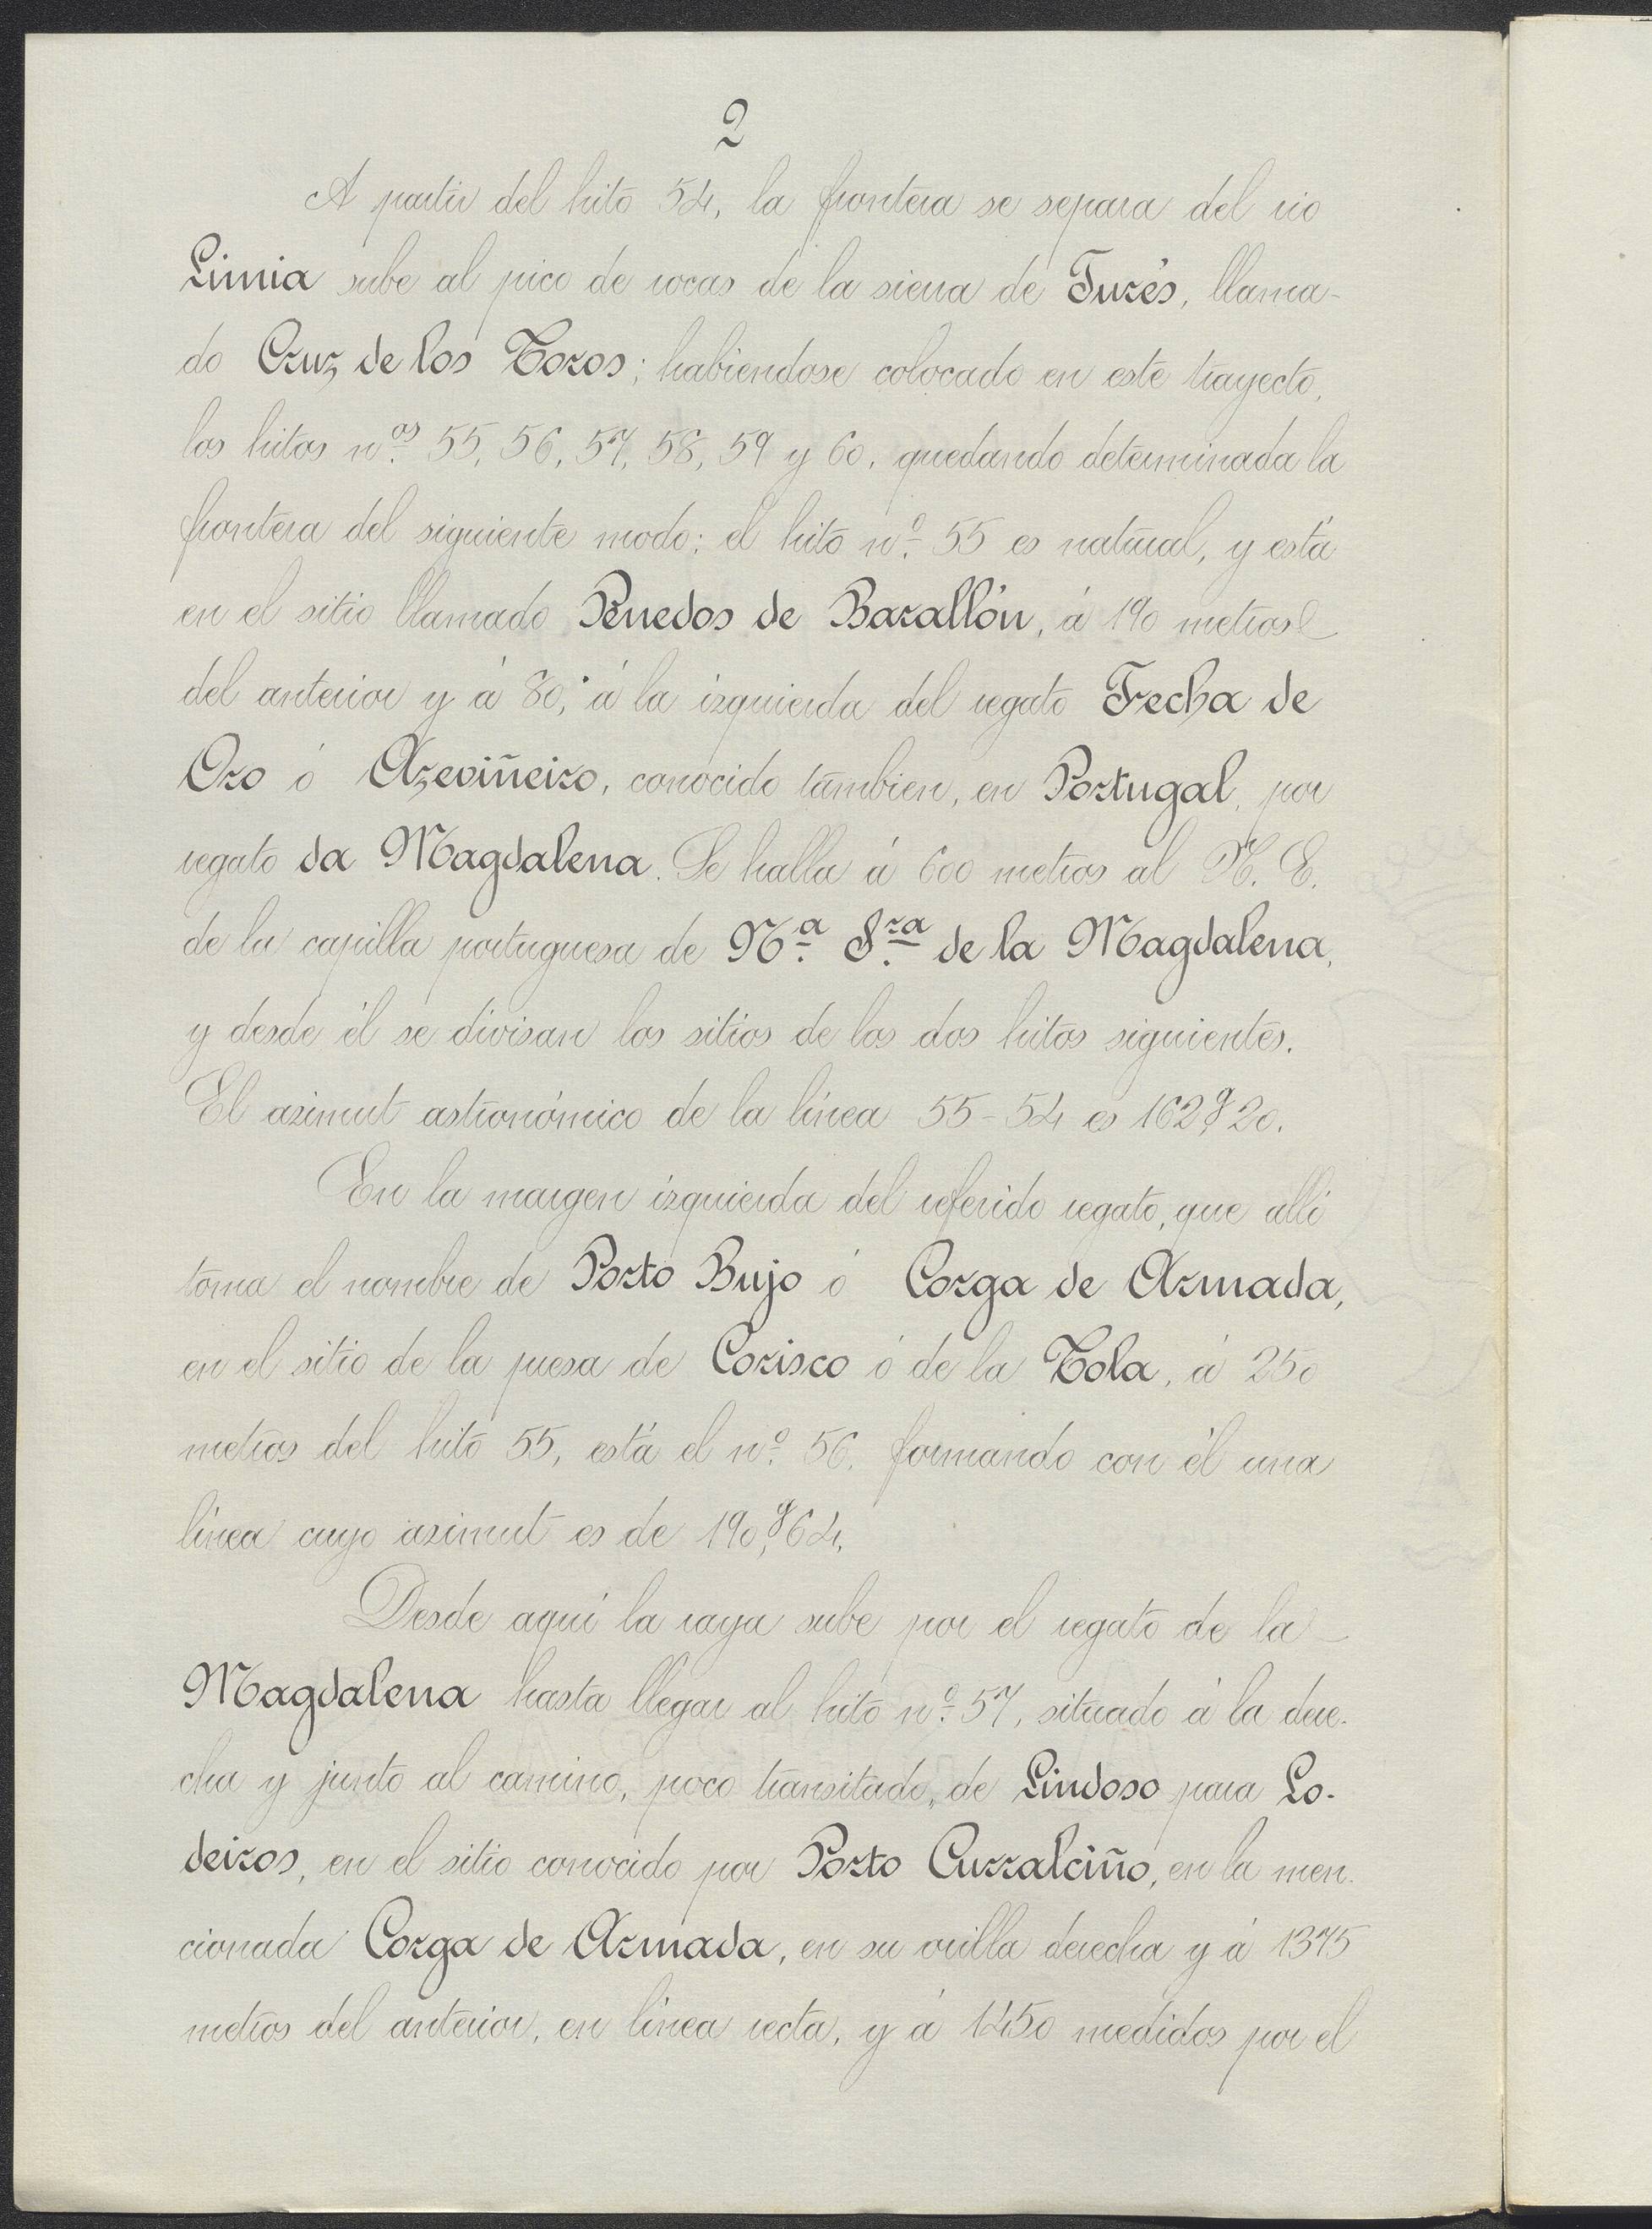 2
A partir del hito 54, la frontera se separa del rio
Limia sube al pico de rocas de la sierra de Jurés, llama-
do Cruz de los Toros; habiendose colocado en este trayecto,
los hitos n.os 55, 56, 57, 58, 59 y 60, quedando determinada la
frontera del siguiente modo: el hito n.º 55 es natural, y está
en el sitio llamado Penedos de Barallón, á 190 metros
del anterior y á 80, á la izquierda del regato Frecha de
Oro ó Azeviñeiro, conocido tambien, en Portugal, por
regato da Magdalena. Se halla á 600 metros al N. E.
de la capilla portuguesa de N.a S.ra de la Magdalena,
y desde él se divisan los sitios de los dos hitos siguientes.
El azimut astronómico de la línea 55-54 es 162,g20.
En la margen izquierda del referido regato, que allí
toma el nombre de Porto Bujo ó Corga de Armada,
en el sitio de la presa de Corisco ó de la Tola, á 250
metros del hito 55, está el n.º 56, formando con él una
línea cuyo azimut es de 190,g64.
Desde aquí la raya sube por el regato de la
Magdalena hasta llegar al hito n.º 57, situado á la dere-
cha y junto al camino, poco transitado, de Lindoso para Lo-
deiros, en el sitio conocido por Porto Curralciño, en la men-
cionada Corga de Armada, en su orilla derecha y á 1375
metros del anterior, en línea recta, y á 1450 medidos por el